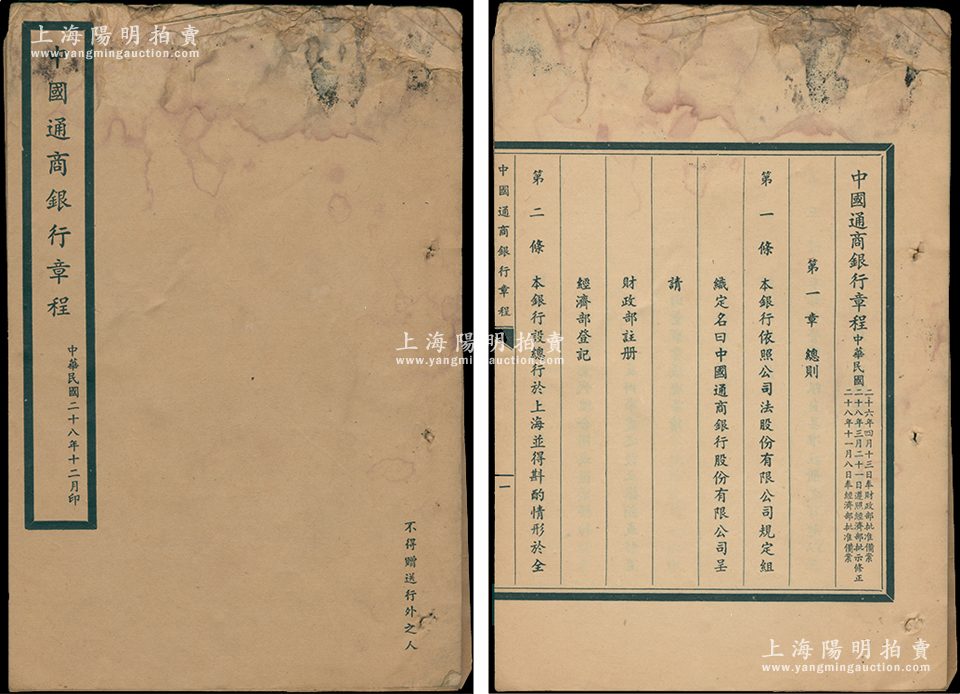 上海陽明拍賣
www.yangmingauction.com
中國通商銀行章程
中華民國二十八年十二月印
不得贈送行外之人
中國通商銀行章程中華民國
二十六年四月十三日奉財政部批准備案
二十八年三月二十一日遵照經濟部批示修正
二十八年十一月八日奉經濟部批准備案
第一章 總則
第一條 本銀行依照公司法股份有限公司規定組
織定名曰中國通商銀行股份有限公司呈
請
財政部註册
經濟部登記
第二條 本銀行設總行於上海並得斟酌情形於全
中國通商銀行章程
一
上海陽明拍賣
www.yangmingauction.com
上海陽明拍賣
www.yangmingauction.com